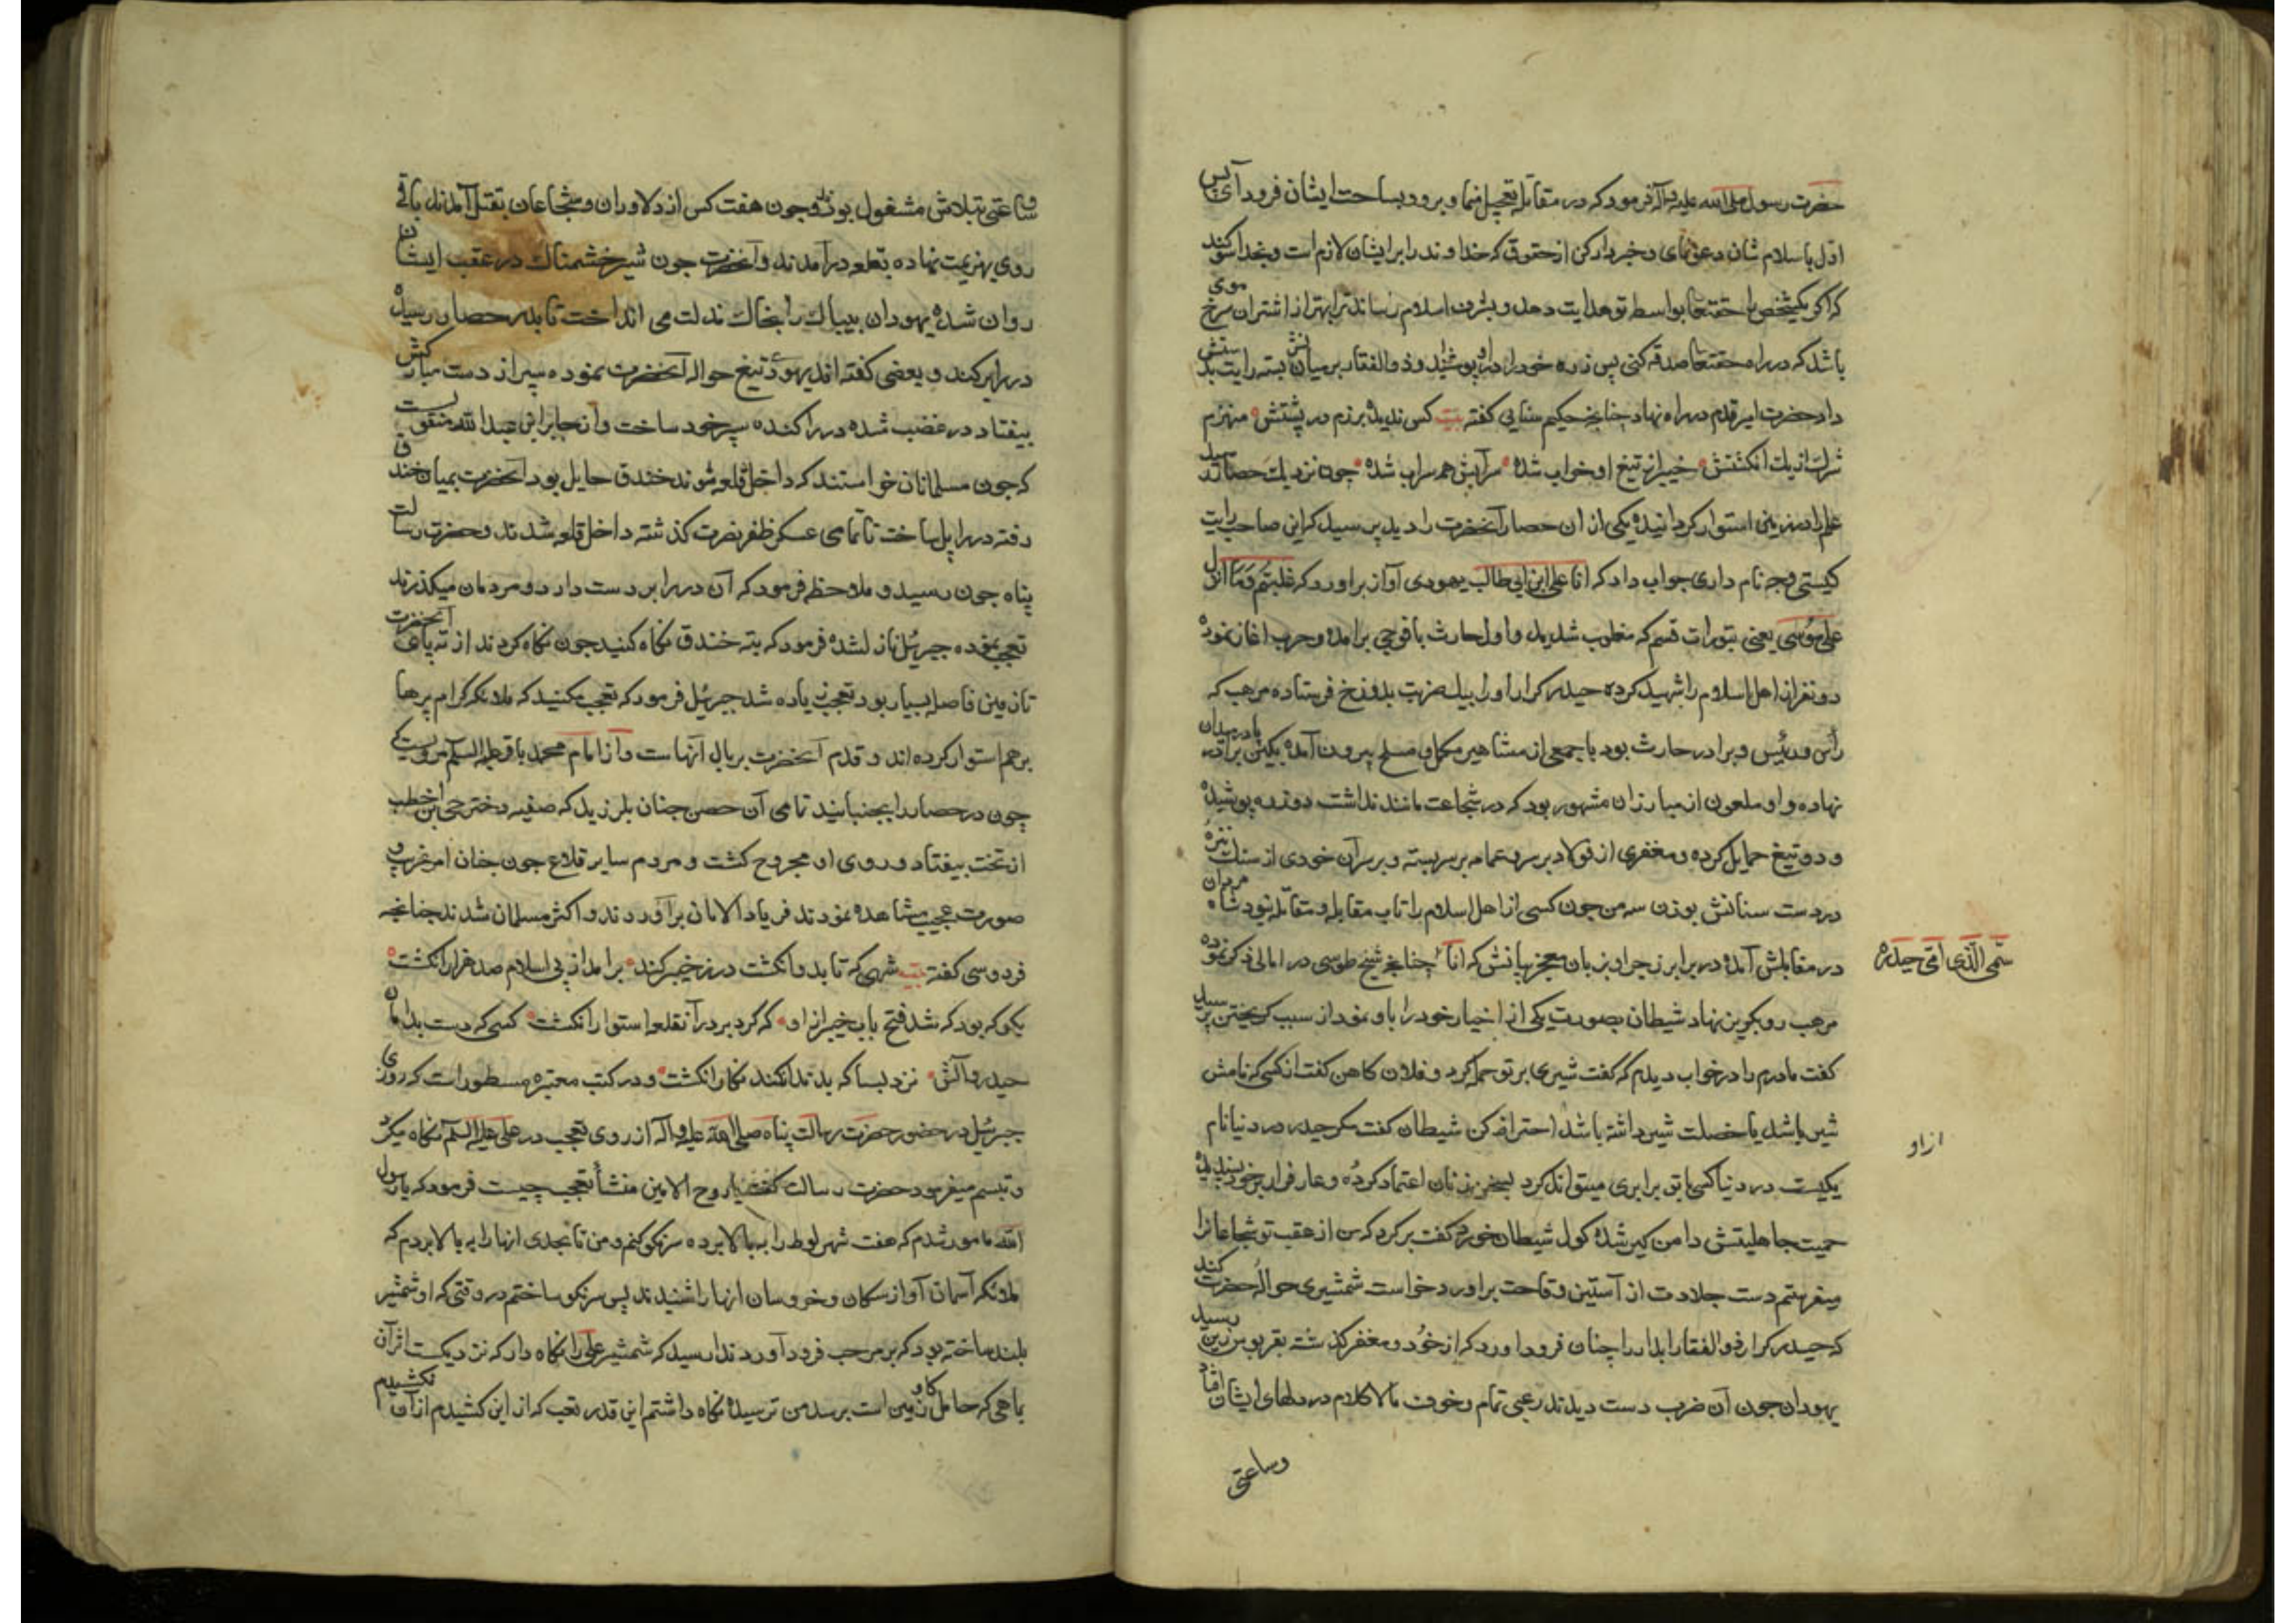 حضرت رسول صلی الله علیه وآله فرمود که در مقابله تعجیل منما و برو و بساحت ایشان فرود آی پس
اول باسلام شان دعوی نمای و خبردار کن از حقوق که خداوند را بر ایشان لازم است و بخدا سوکند
که اکر یکشخص را حقتعا بواسطه تو هدایت دهد و بشرف اسلام رساند ترا بهتر از اشتران سرخ موی
باشد که در راه حقتعا صدقه کنی پس زره خود را در او پوشانید و ذوالفقار بر میانش بسته رایت بدستش
داد حضرت امیر قدم در راه نهاد چنانچه حکیم سنایی کفته بیت کس ندیده برزم در پشتش منهزم
شرک از یک انکشتش خیبر از تیغ او خراب شده سرآبش هم سراب شده چون نزدیک حصار رسید
علم را در زمین استوار کردانیده یکی از ان حصار آنحضرت را دید پرسید که این صاحب رایت
کیستی و چه نام داری جواب داد که انا علی ابن ابی طالب یهودی آواز براورد که غلبتم وما انزل
علی موسی یعنی بتورات قسم که مغلوب شدید و اول حارث با فوجی برامده و حرب اغاز نموده
دو نفر از اهل اسلام را شهید کرده حیدر کرار او را بیک ضربت بدوزخ فرستاده مرهب که
رأس و رئیس و برادر حارث بود با جمعی از مشاهیر مکمل و مسلح بیرون آمده بکین برادر پا در میدان
نهاده و او ملعون از مبارزان مشهور بود که در شجاعت مانند نداشت دو زره پوشیده
و دو تیغ حمایل کرده و مغفری از فولاد بر سر و عمامه بر سر بسته و بر سر آن خودی از سنک نیزه
در دست سنانش بوزن سه من چون کسی از اهل اسلام را تاب مقابله و مقاتله نبود شاه مردان
در مقابلش آمده در برابر زجر او بزبان معجز بیانش که انا چنانچه شیخ طوسی در امالی ذکر نموده
سمی الّذی امّی حیدره
مرهب رو بکریز نهاد شیطان بصورت یکی از اخیار خود را باو نمود از سبب کریختن پرسید
کفت مادرم را در خواب دیدم که کفت شیری بر تو حمله کرد و فلان کاهن کفت انکسی که نامش
شیر باشد یا خصلت شیر داشته باشد احتراز کن شیطان کفت مکر حیدر در دنیا نام
از او
یکیست در دنیا کسی با تو برابری میتواند کرد بسخن زنان اعتماد کرده و عار فرار بر خود پسندیده
حمیت جاهلیتش دامن کیر شده کول شیطان خورد کفت بر کرد که من از عقب تو شجاعانرا
میفرستم دست جلادت از آستین وقاحت براورد خواست شمشیری حواله حضرت کند
که حیدر کرار ذوالفقار ابدار را چنان فرود اورد که از خود و مغفر کذشته بقربوس زین رسید
یهودان چون آن ضرب دست دیدند رعبی تمام و خوف مالا کلام در دلهای ایشان افتاد
وساعتی
وساعتی بتلاش مشغول بودند و چون هفت کس از دلاوران و شجاعان بقتل آمدند باقی
روی بهزیمت نهاده بقلعه درآمدند و آنحضرت چون شیر خشمناک در عقب ایشان
روان شده یهودان بیباک را بخاک ذلت می انداخت تا بدر حصار رسیده
در را بر کند و بعضی کفته اند یهودی تیغ حواله آنحضرت نموده سپر از دست مبارکش
بیفتاد در غضب شده در را کنده سپر خود ساخت و از جابر ابن عبدالله منقولست
که چون مسلمانان خواستند که داخل قلعه شوند خندق حایل بود آنحضرت بمیان خندق
رفته در را پل ساخت تا تمامی عسکر ظفر نصرت کذشته داخل قلعه شدند و حضرت رسالت
پناه چون رسید و ملاحظه فرمود که آن در را بر دست دارد و مردمان میکذرند
تعجب نموده جبرئیل نازل شده فرمود که بته خندق نکاه کنید چون نکاه کردند از ته پای آنحضرت
تا زمین فاصله بسیار بود تعجب زیاده شد جبرئیل فرمود که تعجب مکنید که ملائکه کرام پرها
بر هم استوار کرده اند و قدم آنحضرت بر بال آنهاست و از امام محمد باقر علیه السلم مرویست که
چون در حصار را بجنبانید تمامی آن حصن چنان بلرزید که صفیه دختر حی ابن اخطب
از تخت بیفتاد و روی او مجروح کشت و مردم سایر قلاع چون چنان امر غریب و
صورت عجیب مشاهده نمودند فریاد الامان برآوردند و اکثر مسلمان شدند چنانچه
فردوسی کفته بیت شهی که تا بدو انکشت در ز خیبر کند برامد از پی اسلام صد هزار انکشت
بکو که بود که شد فتح باب خیبر از او که کرد بر در آن قلعه استوار انکشت کسی که دست بدامان
حیدر و آلش نزد بسا که بدندان کند نکار انکشت و در کتب معتبره مسطور است که روزی
جبرئیل در حضور حضرت رسالت پناه صلی الله علیه واله از روی تعجب در علی علیه السلم نکاه میکرد
و تبسم میفرمود حضرت رسالت کفت یا روح الامین منشأ تعجب چیست فرمود که یا رسول
الله مامور شدم که هفت شهر لوط را به بالا برده سرنکون کنم و من تا بحدی انها را به بالا بردم که
ملائکه آسمان آواز سکان و خروسان انها را شنیدند پس سرنکون ساختم در وقتی که او شمشیر
بلند ساخته بود که بر مرحب فرود آورد ندا رسید که شمشیر علی را نکاه دار که نزدیکست اثر آن
بماهی که حامل کاو زمین است برسد من ترسیده نکاه داشتم این قدر تعب که از این کشیدم از آن نکشیدم